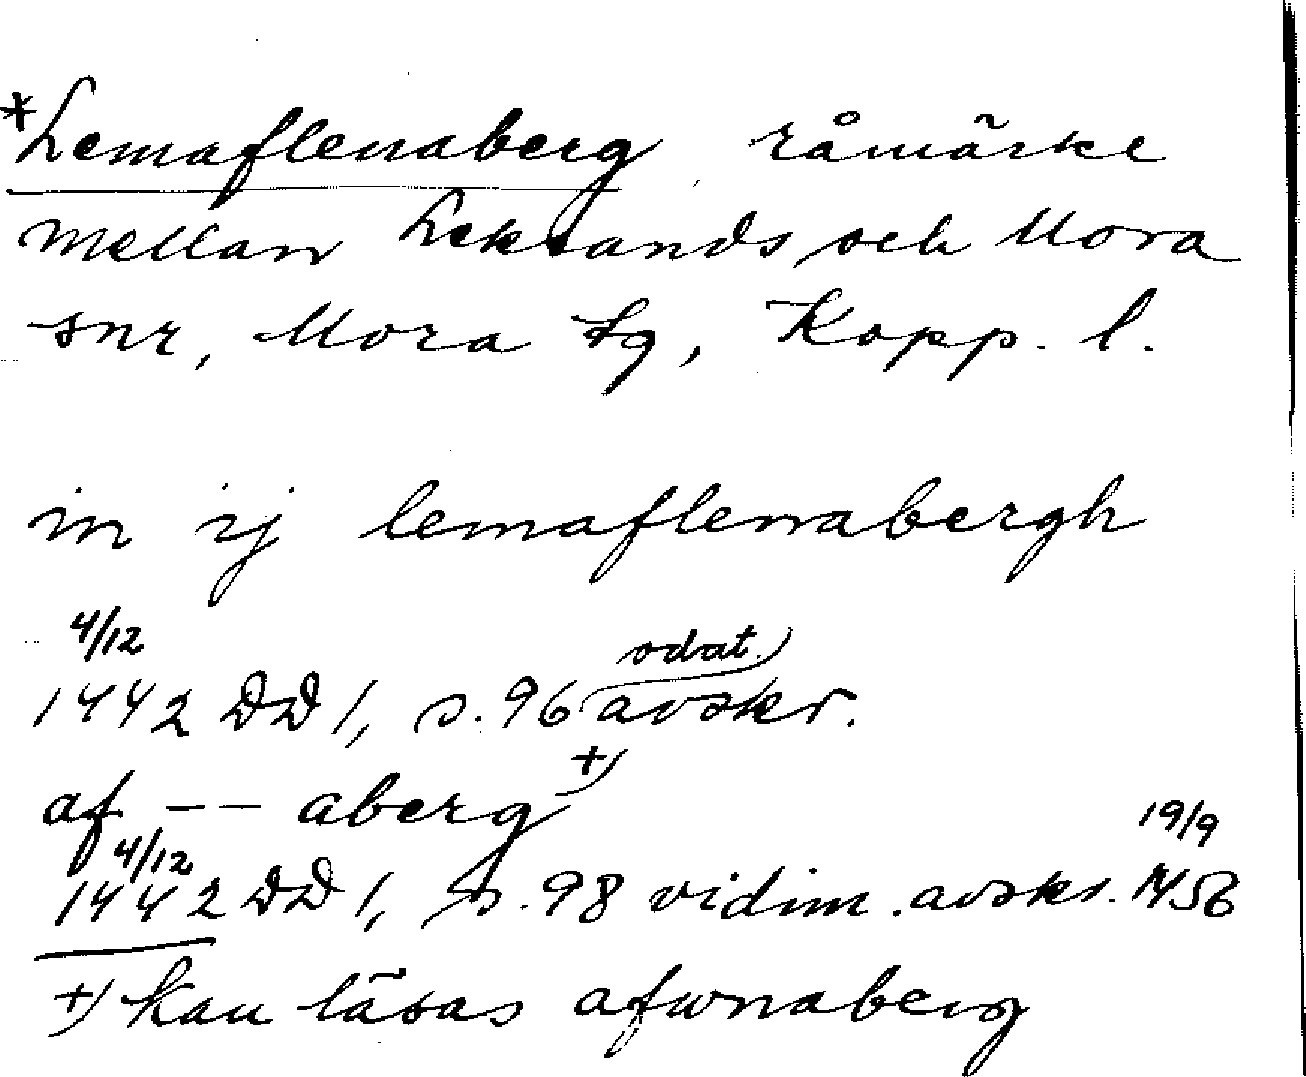 *Lemaflenaberg råmärke
mellan Leksands och Mora
snr, Mora tg, Kopp. l.
in ij lemaflennabergh
4/12
odat.
1442 DD 1, s. 96 avskr.
af -- aberg +)
4/12 19/9
1442 DD 1, s. 98 vidim. avskr. 1456
+) kan läsas afwnaberg